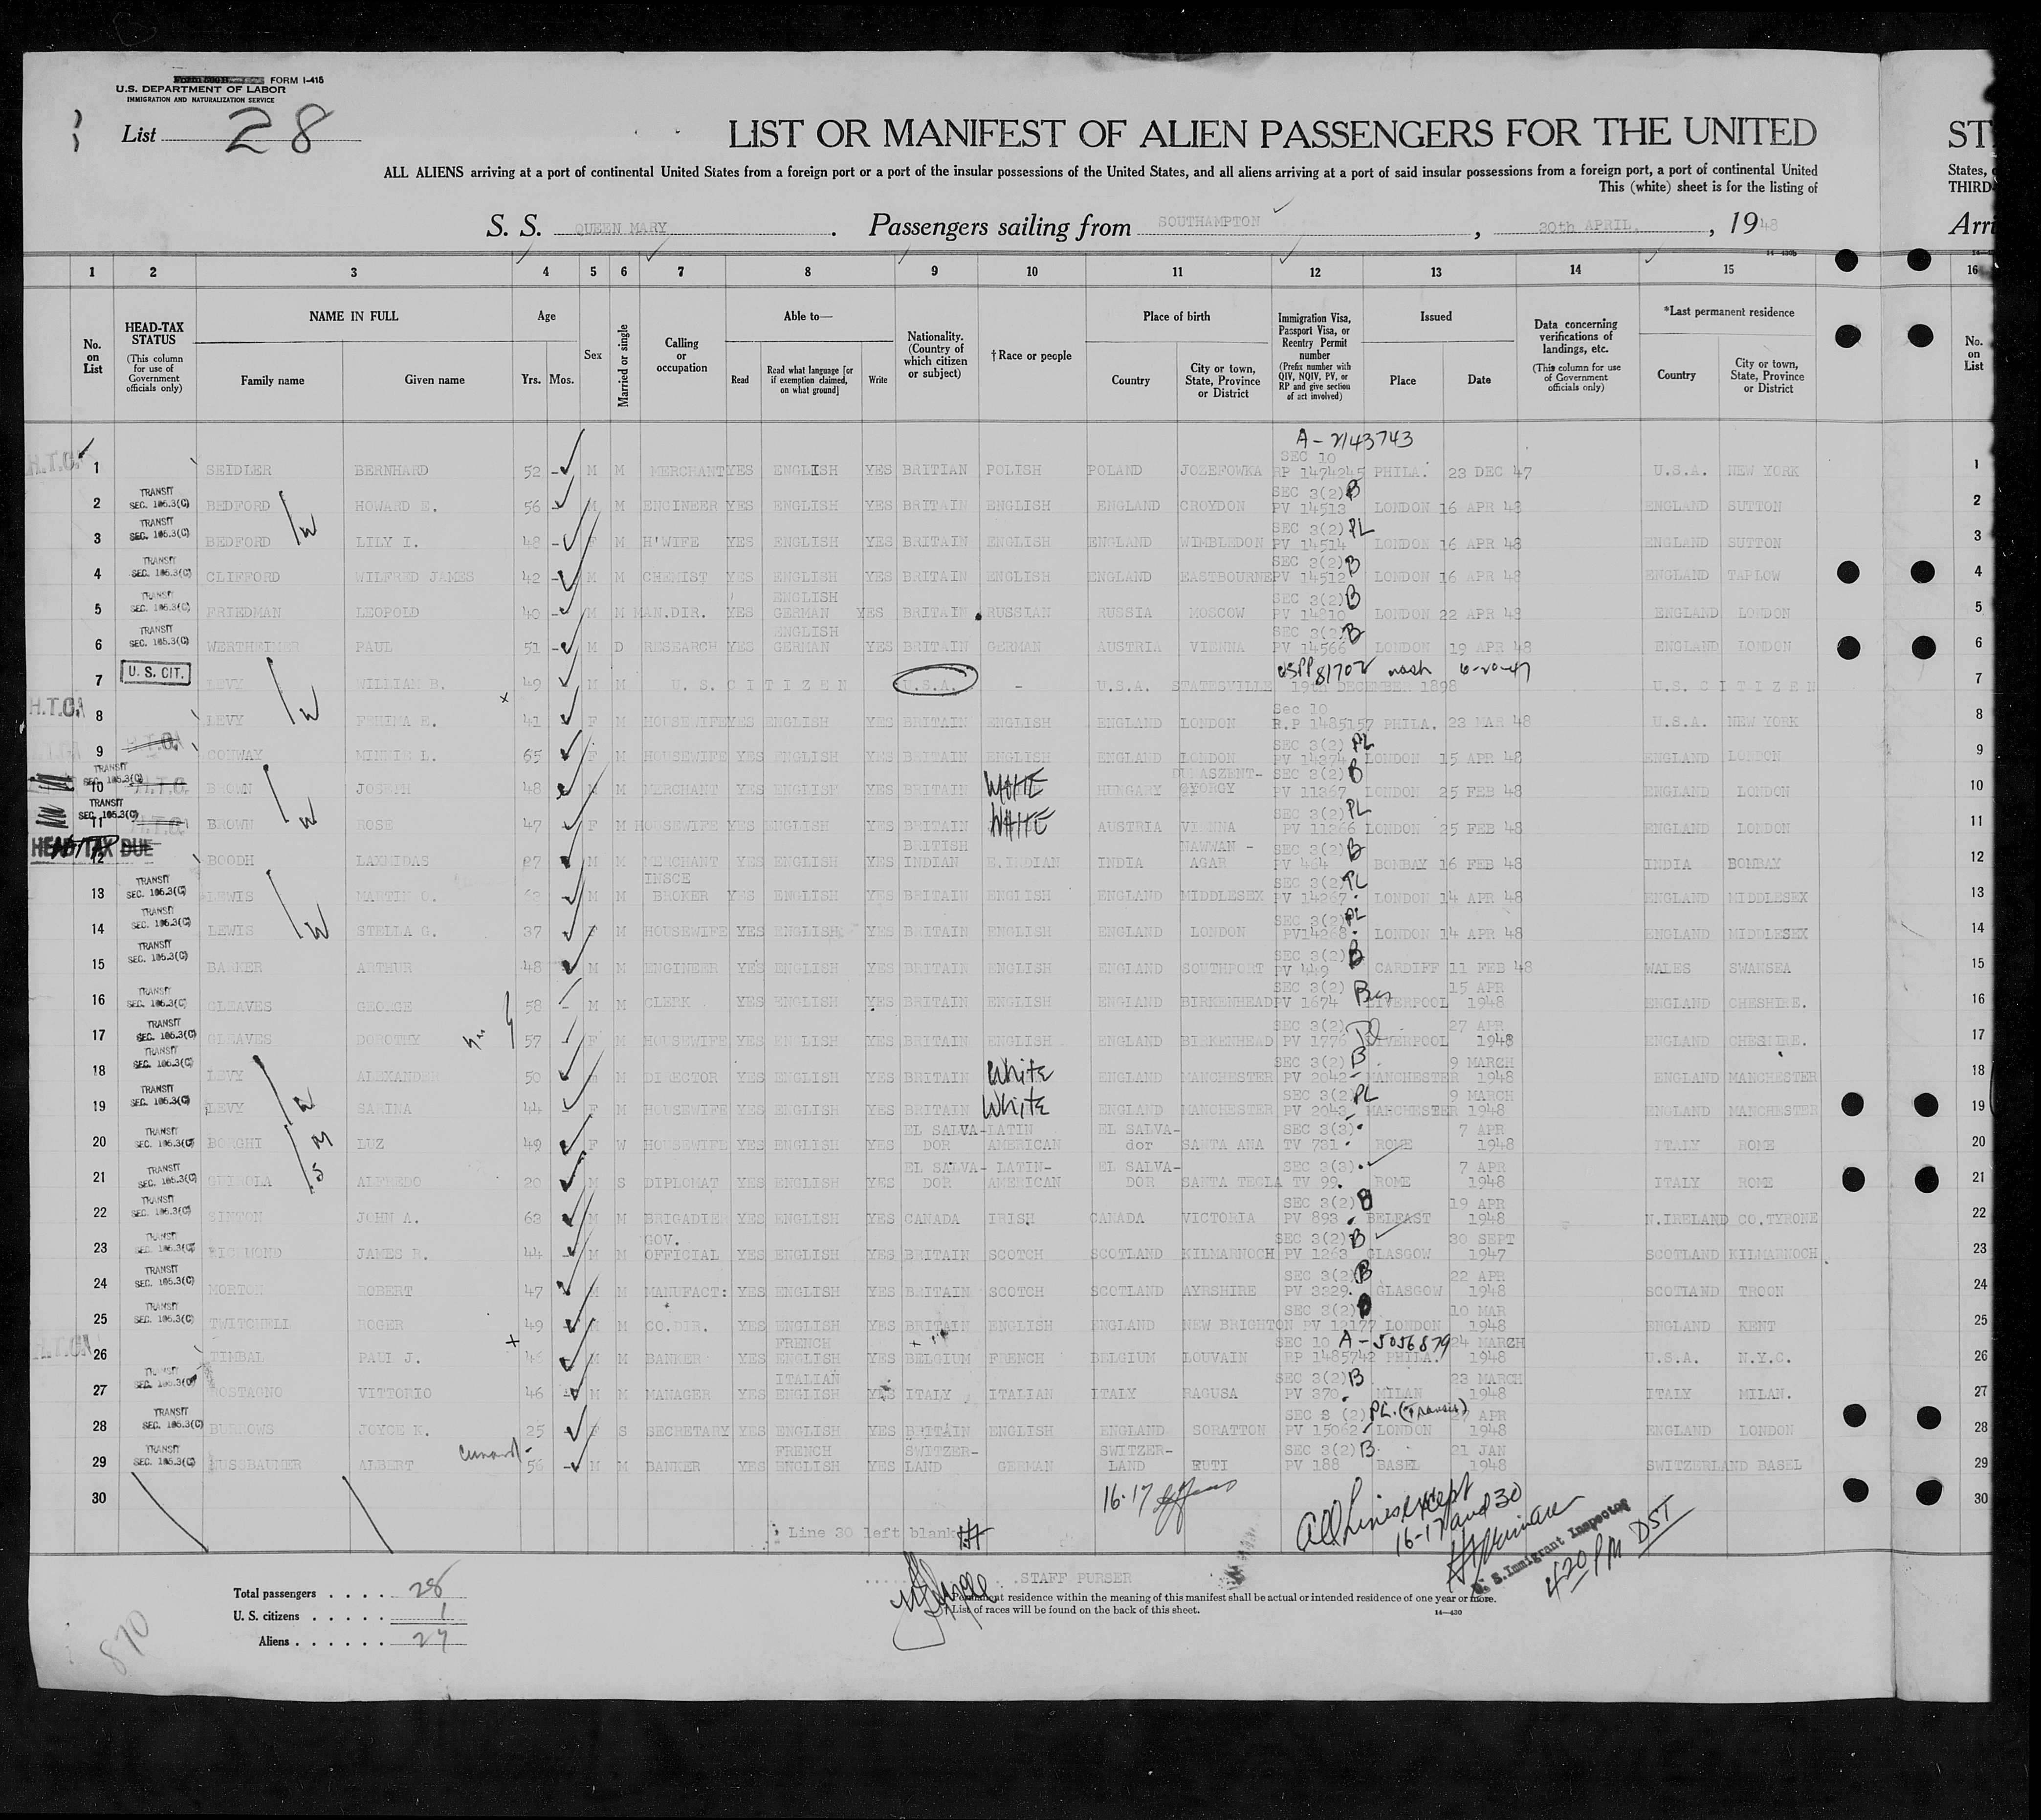 FORM I-415
U.S. DEPARTMENT OF LABOR
IMMIGRATION AND NATURALIZATION SERVICE
List 28
LIST OR MANIFEST OF ALIEN PASSENGERS FOR THE UNITED
ST
ALL ALIENS arriving at a port of continental United States from a foreign port or a port of the insular possessions of the United States, and all aliens arriving at a port of said insular possessions from a foreign port, a port of continental United
States,
This (white) sheet is for the listing of
THIRD-
S. S. QUEEN MARY. Passengers sailing from SOUTHAMPTON, 30th APRIL, 1948
Arri
1 2 3 4 5 6 7 8 9 10 11 12 13 14 15 16
No. on List
HEAD-TAX STATUS (This column for use of Government officials only)
NAME IN FULL
Family name Given name
Age
Yrs. Mos.
Sex
Married or single
Calling or occupation
Able to—
Read
Read what language [or if exemption claimed, on what ground]
Write
Nationality. (Country of which citizen or subject)
†Race or people
Place of birth
Country
City or town, State, Province or District
Immigration Visa, Passport Visa, or Reentry Permit number
(Prefix number with QIV, NQIV, PV, or RP and give section of act involved)
Issued
Place Date
Data concerning verifications of landings, etc. (This column for use of Government officials only)
*Last permanent residence
Country
City or town, State, Province or District
No. on List
A-2143743
1 SEIDLER BERNHARD 52 - M M MERCHANT YES ENGLISH YES BRITIAN POLISH POLAND JOZEFOWKA SEC 10 RP 1474245 PHILA. 23 DEC 47 U.S.A. NEW YORK 1
2 TRANSIT SEC. 105.3(C) BEDFORD HOWARD E. 56 M M ENGINEER YES ENGLISH YES BRITAIN ENGLISH ENGLAND CROYDON SEC 3(2) B PV 14513 LONDON 16 APR 48 ENGLAND SUTTON 2
3 TRANSIT SEC. 105.3(C) BEDFORD LILY I. 48 - F M H'WIFE YES ENGLISH YES BRITAIN ENGLISH ENGLAND WIMBLEDON SEC 3(2) PL PV 14514 LONDON 16 APR 48 ENGLAND SUTTON 3
4 TRANSIT SEC. 105.3(C) CLIFFORD WILFRED JAMES 42 - M M CHEMIST YES ENGLISH YES BRITAIN ENGLISH ENGLAND EASTBOURNE SEC 3(2) B PV 14512 LONDON 16 APR 48 ENGLAND TAPLOW 4
5 TRANSIT SEC. 105.3(C) FRIEDMAN LEOPOLD 40 - M M MAN.DIR. YES ENGLISH GERMAN YES BRITAIN RUSSIAN RUSSIA MOSCOW SEC 3(2) B PV 14810 LONDON 22 APR 48 ENGLAND LONDON 5
6 TRANSIT SEC. 105.3(C) WERTHEIMER PAUL 51 - M D RESEARCH YES ENGLISH GERMAN YES BRITAIN GERMAN AUSTRIA VIENNA SEC 3(2) B PV 14566 LONDON 19 APR 48 ENGLAND LONDON 6
7 U. S. CIT. LEVY WILLIAM B. 49 M M U. S. CITIZEN U.S.A. - U.S.A. STATESVILLE USPP 81702 wash 6-20-47 19th DECEMBER 1898 U.S. CITIZEN 7
8 H.T.C. LEVY FEHIMA E. 41 F M HOUSEWIFE YES ENGLISH YES BRITAIN ENGLISH ENGLAND LONDON Sec 10 R.P 1485157 PHILA. 23 MAR 48 U.S.A. NEW YORK 8
9 CONWAY MINNIE L. 65 F M HOUSEWIFE YES ENGLISH YES BRITAIN ENGLISH ENGLAND LONDON SEC 3(2) PL PV 14374 LONDON 15 APR 48 ENGLAND LONDON 9
10 TRANSIT SEC. 105.3(C) BROWN JOSEPH 48 M MERCHANT YES ENGLISH YES BRITAIN WHITE HUNGARY DUNASZENT-GYORGY SEC 3(2) B PV 11367 LONDON 25 FEB 48 ENGLAND LONDON 10
11 TRANSIT SEC. 105.3(C) BROWN ROSE 47 F M HOUSEWIFE YES ENGLISH YES BRITAIN WHITE AUSTRIA VIENNA SEC 3(2) PL PV 11366 LONDON 25 FEB 48 ENGLAND LONDON 11
12 HEAD TAX DUE BOODH LAXMIDAS 27 M M MERCHANT YES ENGLISH YES BRITISH INDIAN E.INDIAN INDIA NAWWAN - AGAR SEC 3(2) B PV 464 BOMBAY 16 FEB 48 INDIA BOMBAY 12
13 TRANSIT SEC. 105.3(C) LEWIS MARTIN O. M M INSCE BROKER YES ENGLISH YES BRITAIN ENGLISH ENGLAND MIDDLESEX SEC 3(2) PL PV 14267 LONDON 14 APR 48 ENGLAND MIDDLESEX 13
14 TRANSIT SEC. 105.3(C) LEWIS STELLA G. 37 F M HOUSEWIFE YES ENGLISH YES BRITAIN ENGLISH ENGLAND LONDON SEC 3(2) PL PV14268 LONDON 14 APR 48 ENGLAND MIDDLESEX 14
15 TRANSIT SEC. 105.3(C) BARKER ARTHUR 48 M M ENGINEER YES ENGLISH YES BRITAIN ENGLISH ENGLAND SOUTHPORT SEC 3(2) B PV 449 CARDIFF 11 FEB 48 WALES SWANSEA 15
16 TRANSIT SEC. 105.3(C) GLEAVES GEORGE 58 - M M CLERK YES ENGLISH YES BRITAIN ENGLISH ENGLAND BIRKENHEAD SEC 3(2) PV 1674 LIVERPOOL 15 APR 1948 ENGLAND CHESHIRE. 16
17 TRANSIT SEC. 105.3(C) GLEAVES DOROTHY 57 - F M HOUSEWIFE YES ENGLISH YES BRITAIN ENGLISH ENGLAND BIRKENHEAD SEC 3(2) PL PV 1776 LIVERPOOL 27 APR 1948 ENGLAND CHESHIRE. 17
18 TRANSIT SEC. 105.3(C) LEVY ALEXANDER 50 M M DIRECTOR YES ENGLISH YES BRITAIN White ENGLAND MANCHESTER SEC 3(2) B PV 2042 MANCHESTER 9 MARCH 1948 ENGLAND MANCHESTER 18
19 TRANSIT SEC. 105.3(C) LEVY SARINA 44 - F M HOUSEWIFE YES ENGLISH YES BRITAIN White ENGLAND MANCHESTER SEC 3(2) PL PV 2043 MANCHESTER 9 MARCH 1948 ENGLAND MANCHESTER 19
20 TRANSIT SEC. 105.3(C) BORGHI LUZ 49 F W HOUSEWIFE YES ENGLISH YES EL SALVA-DOR LATIN AMERICAN EL SALVA-dor SANTA ANA SEC 3(3) TV 731 ROME 7 APR 1948 ITALY ROME 20
21 TRANSIT SEC. 105.3(C) GUIROLA ALFREDO 20 M S DIPLOMAT YES ENGLISH YES EL SALVA-DOR LATIN-AMERICAN EL SALVA-DOR SANTA TECLA SEC 3(3) TV 99. ROME 7 APR 1948 ITALY ROME 21
22 TRANSIT SEC. 105.3(C) SINTON JOHN A. 63 M M BRIGADIER YES ENGLISH YES CANADA IRISH CANADA VICTORIA SEC 3(2) B PV 893 BELFAST 19 APR 1948 N.IRELAND CO.TYRONE 22
23 TRANSIT SEC. 105.3(C) RICHMOND JAMES R. 44 M M GOV. OFFICIAL YES ENGLISH YES BRITAIN SCOTCH SCOTLAND KILMARNOCH SEC 3(2) B PV 1263 GLASGOW 30 SEPT 1947 SCOTLAND KILMARNOCH 23
24 TRANSIT SEC. 105.3(C) MORTON ROBERT 47 M M MANUFACT: YES ENGLISH YES BRITAIN SCOTCH SCOTLAND AYRSHIRE SEC 3(2) B PV 3329. GLASGOW 22 APR 1948 SCOTLAND TROON 24
25 TRANSIT SEC. 105.3(C) TWITCHELL ROGER 49 M M CO.DIR. YES ENGLISH YES BRITAIN ENGLISH ENGLAND NEW BRIGHTON SEC 3(2) B PV 12177 LONDON 10 MAR 1948 ENGLAND KENT 25
26 TIMBAL PAUL J. 46 M M BANKER YES FRENCH ENGLISH YES BELGIUM FRENCH BELGIUM LOUVAIN SEC 10 A-5056879 RP 1485742 PHILA. 24 MARCH 1948 U.S.A. N.Y.C. 26
27 TRANSIT SEC. 105.3(C) ROSTAGNO VITTORIO 46 M M MANAGER YES ITALIAN ENGLISH YES ITALY ITALIAN ITALY RAGUSA SEC 3(2) B PV 370 MILAN 23 MARCH 1948 ITALY MILAN. 27
28 TRANSIT SEC. 105.3(C) BURROWS JOYCE K. 25 F S SECRETARY YES ENGLISH YES BRITAIN ENGLISH ENGLAND SORATTON SEC 3 (2) PL. (Transit) PV 15062 LONDON APR 1948 ENGLAND LONDON 28
29 TRANSIT SEC. 105.3(C) NUSSBAUMER ALBERT cunard 56 - M M BANKER YES FRENCH ENGLISH YES SWITZER-LAND GERMAN SWITZER-LAND RUTI SEC 3(2) B PV 188 BASEL 21 JAN 1948 SWITZERLAND BASEL 29
30 16-17 30
Line 30 left blank
All Lines except 16-17 and 30
U. S. Immigrant Inspector
420 PM DST
STAFF PURSER
Total passengers . . . . 28
U. S. citizens . . . . . 1
Aliens . . . . . . 27
Permanent residence within the meaning of this manifest shall be actual or intended residence of one year or more.
List of races will be found on the back of this sheet.
14—430
870